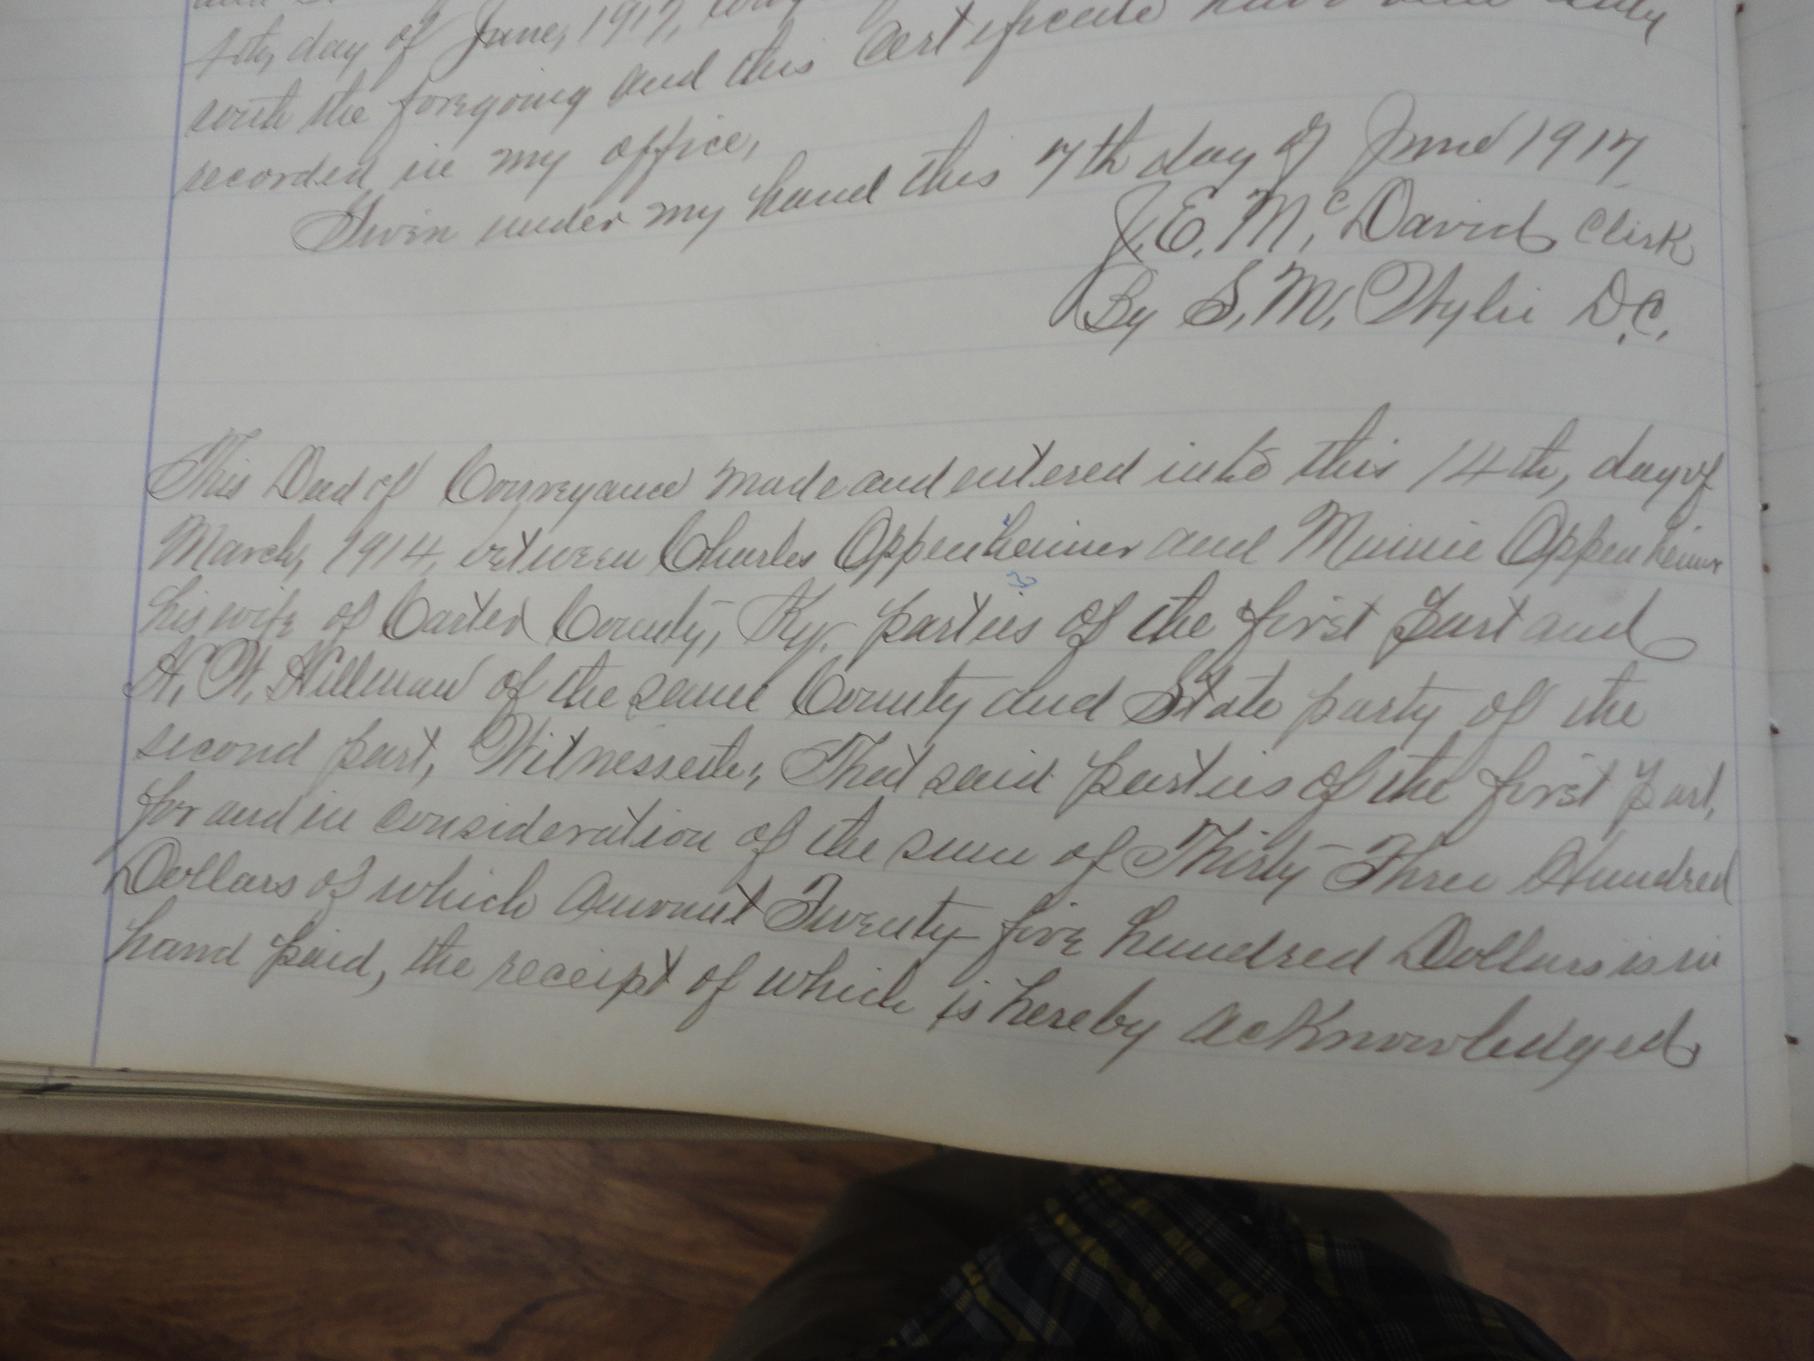 day of June, 1917,
with the foregoing and this Certificate have been duly
recorded in my office,
Given under my hand this 7th day of June 1917
J. E. Mc David Clerk
By S. M. Wylie D.C.
This Deed of Conveyance made and entered into this 14th, day of
March, 1914, between Charles Oppenheimer and Minnie Oppenheimer
his wife of Carter County, Ky. parties of the first Part and
H. W. Hillman of the same County and State party of the
second part, Witnesseth; That said parties of the first Part,
for and in consideration of the sum of Thirty-Three Hundred
Dollars of which amount Twenty-five hundred Dollars is in
hand paid, the receipt of which is hereby acknowledged,